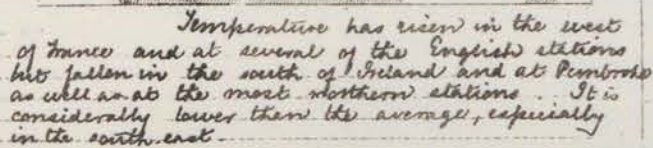 Temperature has risen in the west
of France and at several of the English stations
but fallen in the south of Ireland and at Pembroke
as well as at the most northern stations. It is
considerably lower than the average, especially
in the south east.